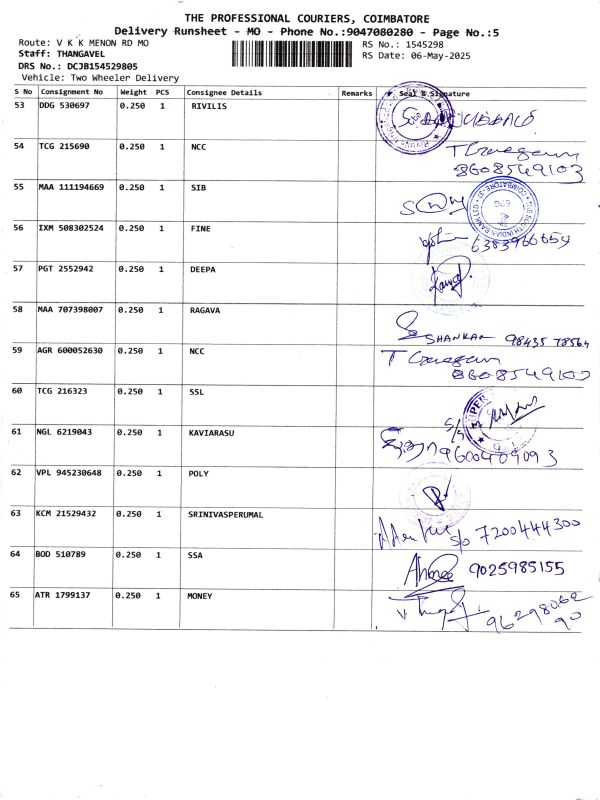 THE PROFESSIONAL COURIERS, COIMBATORE
Delivery Runsheet - MO - Phone No.:9047080280 - Page No.:5
Route: V K K MENON RD MO
RS No.: 1545298
Staff: THANGAVEL
RS Date: 06-May-2025
DRS No.: DCJB154529805
Vehicle: Two Wheeler Delivery
S No Consignment No Weight PCS Consignee Details Remarks Seal & Signature
53 DDG 530697 0.250 1 RIVILIS
54 TCG 215690 0.250 1 NCC
8608549103
55 MAA 111194669 0.250 1 SIB
56 IXM 508302524 0.250 1 FINE
6383966654
57 PGT 2552942 0.250 1 DEEPA
58 MAA 707398007 0.250 1 RAGAVA
SHANKAR 98435 78564
59 AGR 600052630 0.250 1 NCC
8608549103
60 TCG 216323 0.250 1 SSL
61 NGL 6219043 0.250 1 KAVIARASU
9600409093
62 VPL 945230648 0.250 1 POLY
63 KCM 21529432 0.250 1 SRINIVASPERUMAL
s/o 7200444300
64 BOD 510789 0.250 1 SSA
9025985155
65 ATR 1799137 0.250 1 MONEY
96298062
90